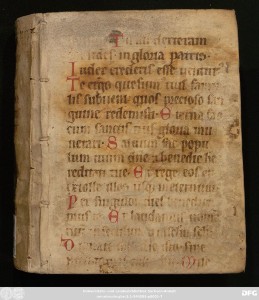 Tu ad dexteram
sedes in gloria patris
Iudex crederis esse uentur
Te ergo quesum tuis famu
lis subueni quos precioso san
guine redemisti Eterna fac
cum sanctis tuis gloria mu
nerari Saluum fac popu
lum tuum dne et benedic he
reditati tue Et rege eos et
extolle illos usq in eternum
Per singulos dies benedici
mus te Et laudam nomen
tuum in seculum
Dignare dne die
DFG